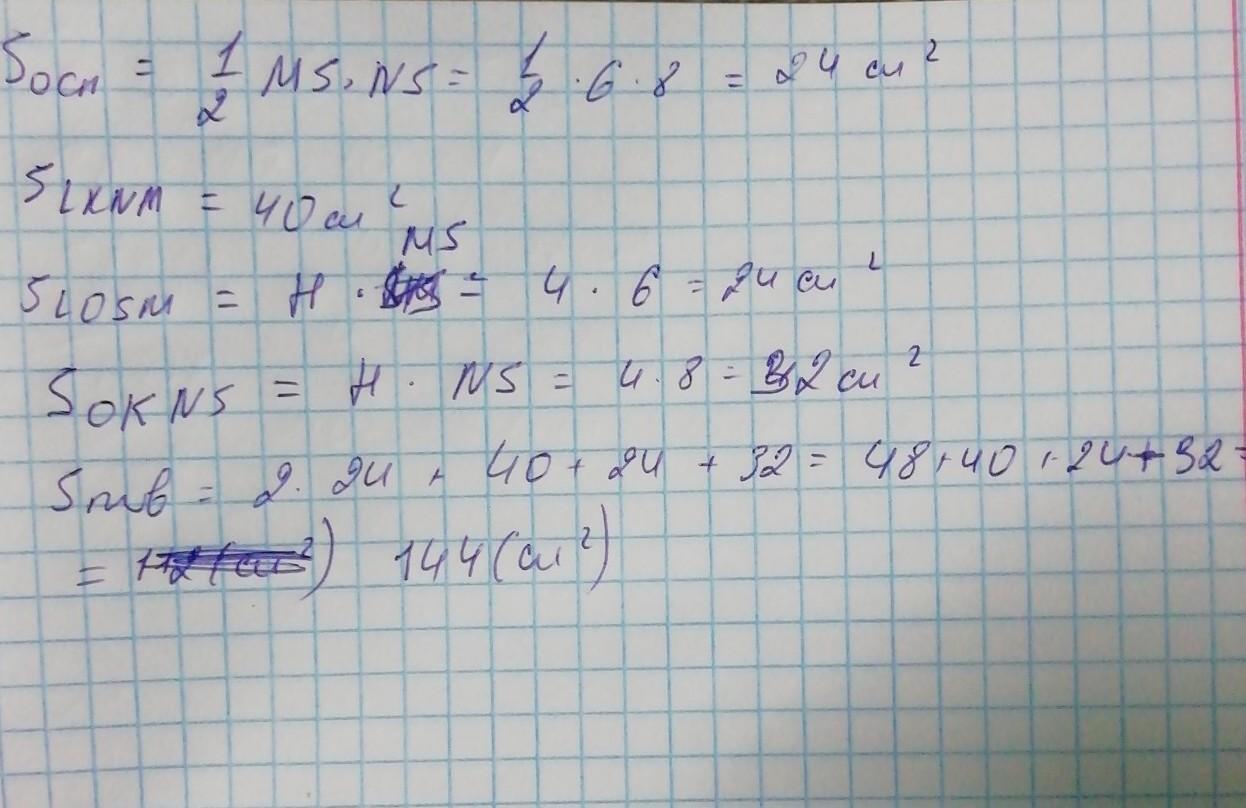 Sосн = 1/2 MS · NS = 1/2 · 6 · 8 = 24 см²
SLKNM = 40 см²
MS
SLOSM = H · = 4 · 6 = 24 см²
SOKNS = H · NS = 4 · 8 = 32 см²
Sпов = 2 · 24 + 40 + 24 + 32 = 48 + 40 + 24 + 32 =
= 144 (см²)